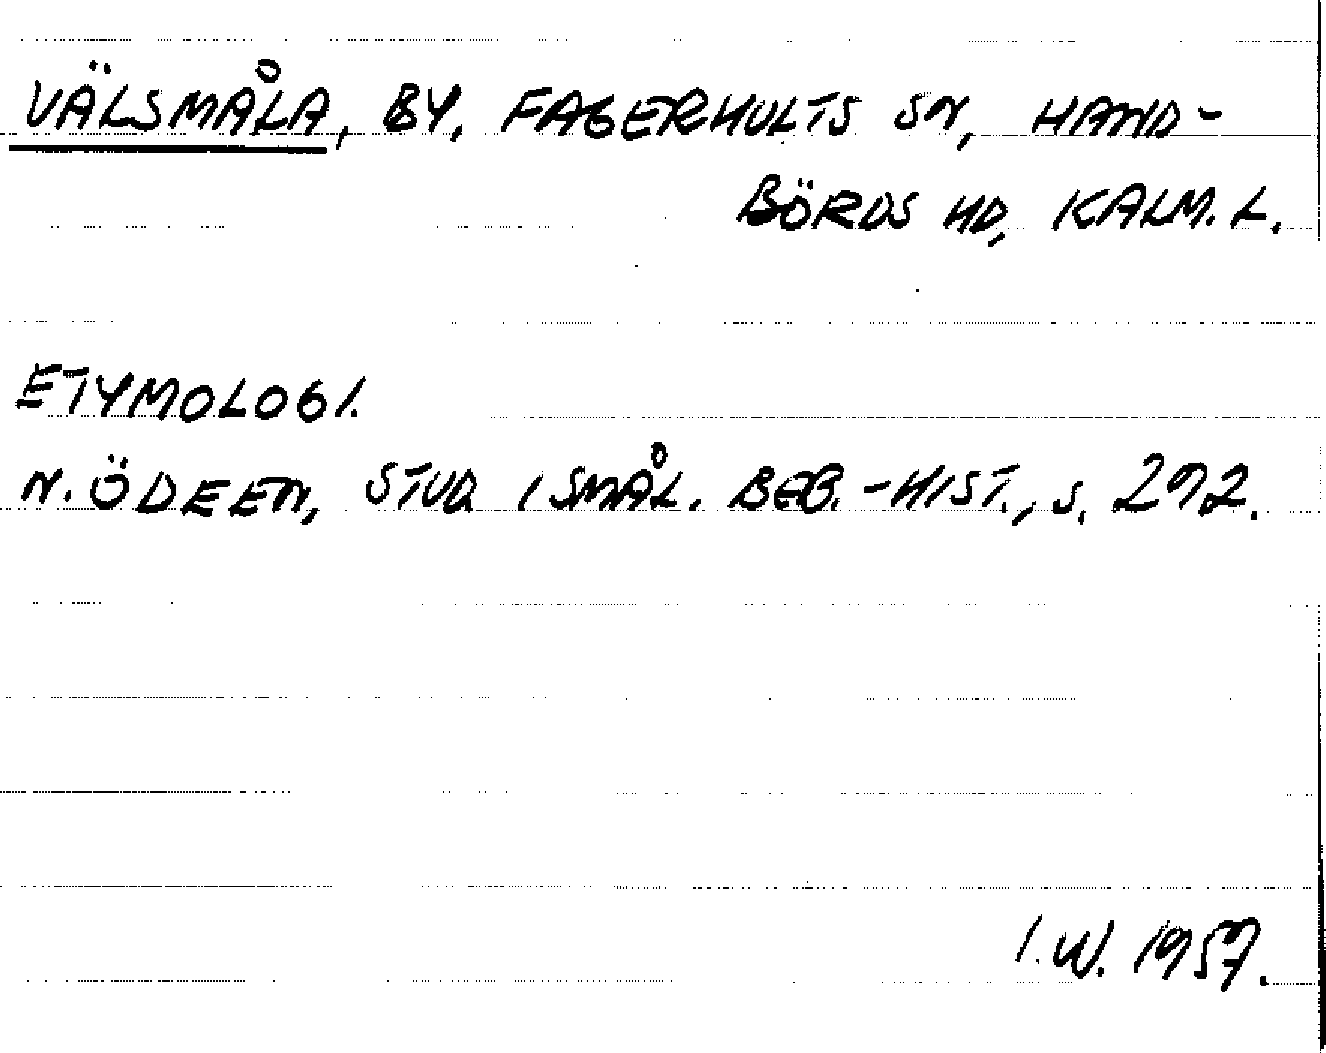 VÄLSMÅLA, BY, FAGERHULTS SN, HAND-
BÖRDS HD, KALM. L.
ETYMOLOGI.
N. ÖDEEN, STUD. I SMÅL. BEB.-HIST., S. 292.
I.W. 1957.